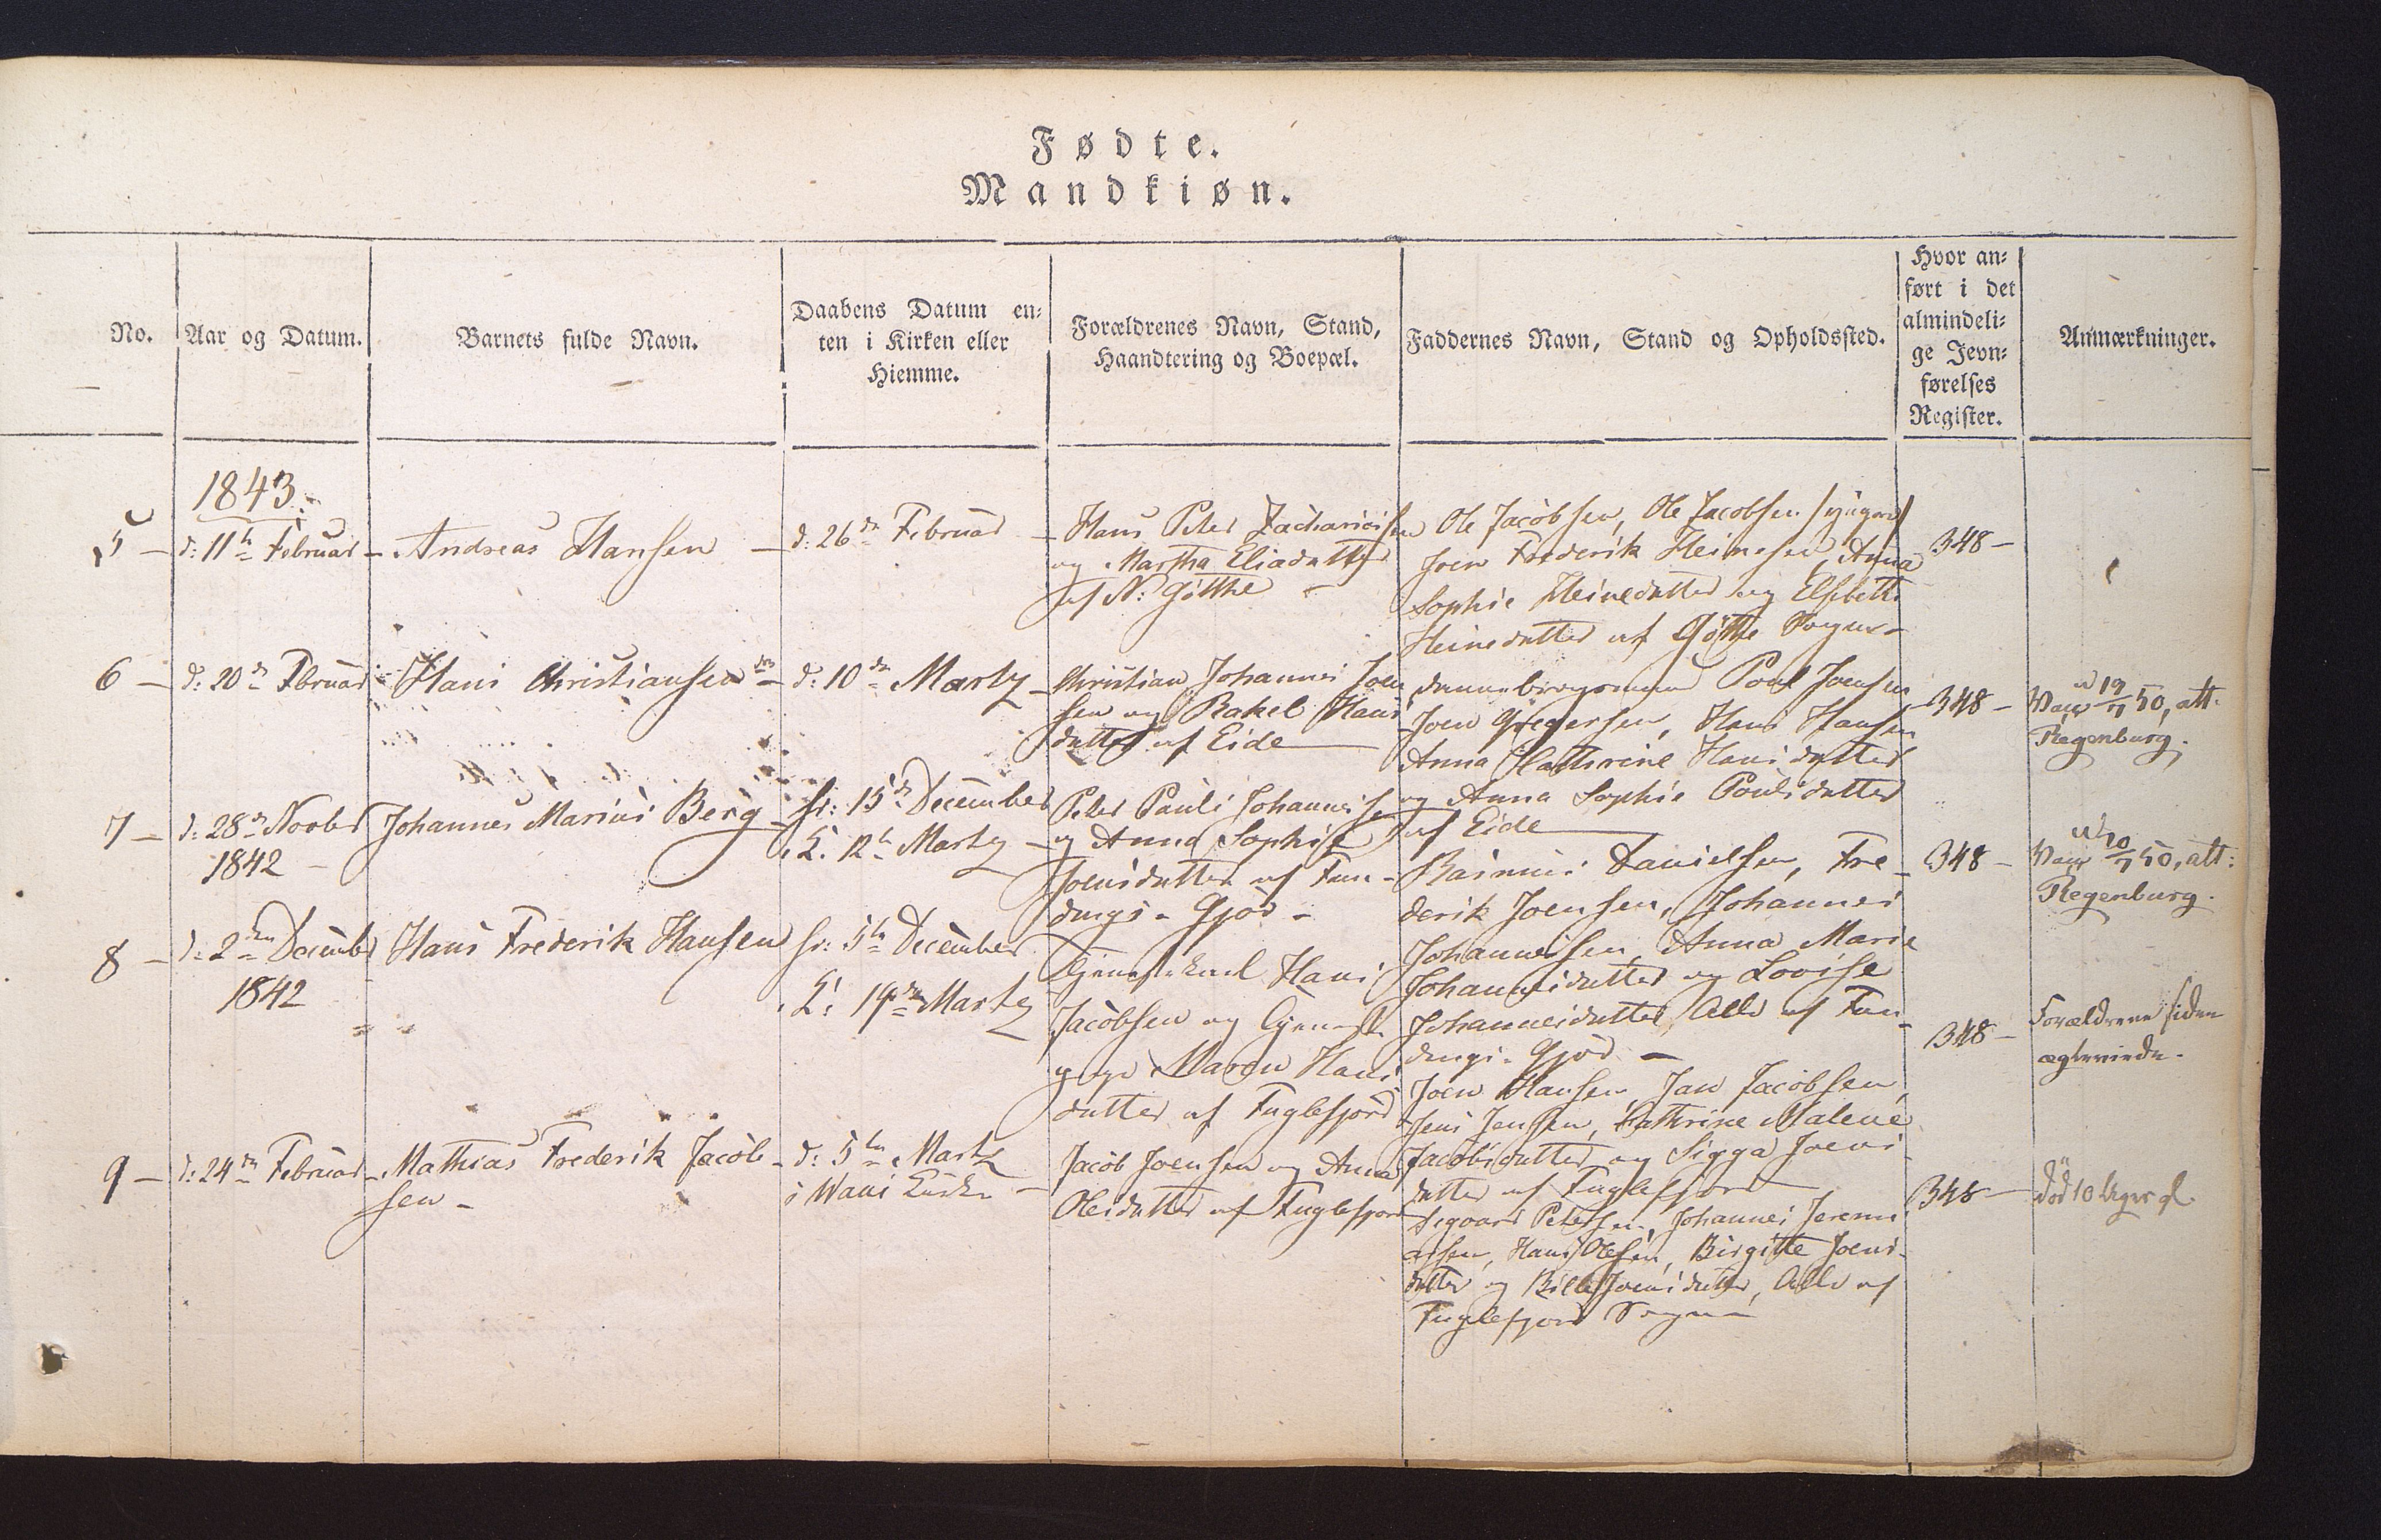 Fødte.
Mandkiøn.
No.
Aar og Datum.
Barnets fulde Navn.
Daabens Datum en-
ten i Kirken eller
Hiemme.
Forældrenes Navn, Stand,
Haandtering og Boepæl.
Faddernes Navn, Stand og Opholdssted.
Hvor an-
ført i det
almindeli-
ge Jevn-
førelses
Register.
Anmærkninger.
1843.
5 –
d: 11te Februar –
Andreas Hansen –
d: 26de Februar
Hans Peter Zachariasen
og Martha Eliadatter
af N: Gøthe –
Ole Jacobsen, Ole Jacobsen /yngre/
Joen Frederik Heinesen, Anna
Sophie Heinedatter og Elsebeth
Heinedatter af Gøthe Sogn –
348 –
6 –
d: 20de Februar
Hans Christiansen
d: 10de Marty –
Christian Johannes Joen
sen og Rakel Hans
datter af Eide
Dannebrogsmand Poul Joensen
Joen Gregersen, Hans Hansen
Anna Cathrine Hansdatter
og Anna Sophie Poulsdatter
af Eide
348 –
Vacc 19/7 50, att.
Regenburg.
7 –
d: 28de Novbr
1842 –
Johannes Marius Berg
hr: 15de December
i K. 12te Marty –
Peter Pauli Johannesen
og Anna Sophie
Joensdatter af Fun-
dings-Gjov –
Rasmus Danielsen, Fre-
derik Joensen, Johannes
Johannesen, Anna Marie
Johannesdatter og Lovise
Johannesdatter, Alle af Fun-
dings-Gjov –
348 –
Vacc 10/7 50, att:
Regenburg.
8 –
d: 2den Decembr
1842
Hans Frederik Hansen
hr: 5te December
i K: 19de Marty
Tjenestekarl Hans
Jacobsen og Tjeneste
pige Maren Hans
datter af Fuglefjord
Joen Hansen, Jan Jacobsen,
Jens Jensen, Cathrine Malene
Jacobsdatter og Sigga Joens
datter af Fuglefjord
348 –
Forældrene siden
ægteviede.
9 –
d: 24de Februar –
Mathias Frederik Jacob-
sen –
d: 5te Marty
i Waus Kirke –
Jacob Joensen og Anna
Olesdatter af Fuglefjord
Sigvard Petersen, Johannes Jeremi
assen, Hans Olesen, Birgitte Joens-
datter og Bille Joensdatter, Alle af
Fuglefjord Sogn
348 –
død 10 Uger gl.